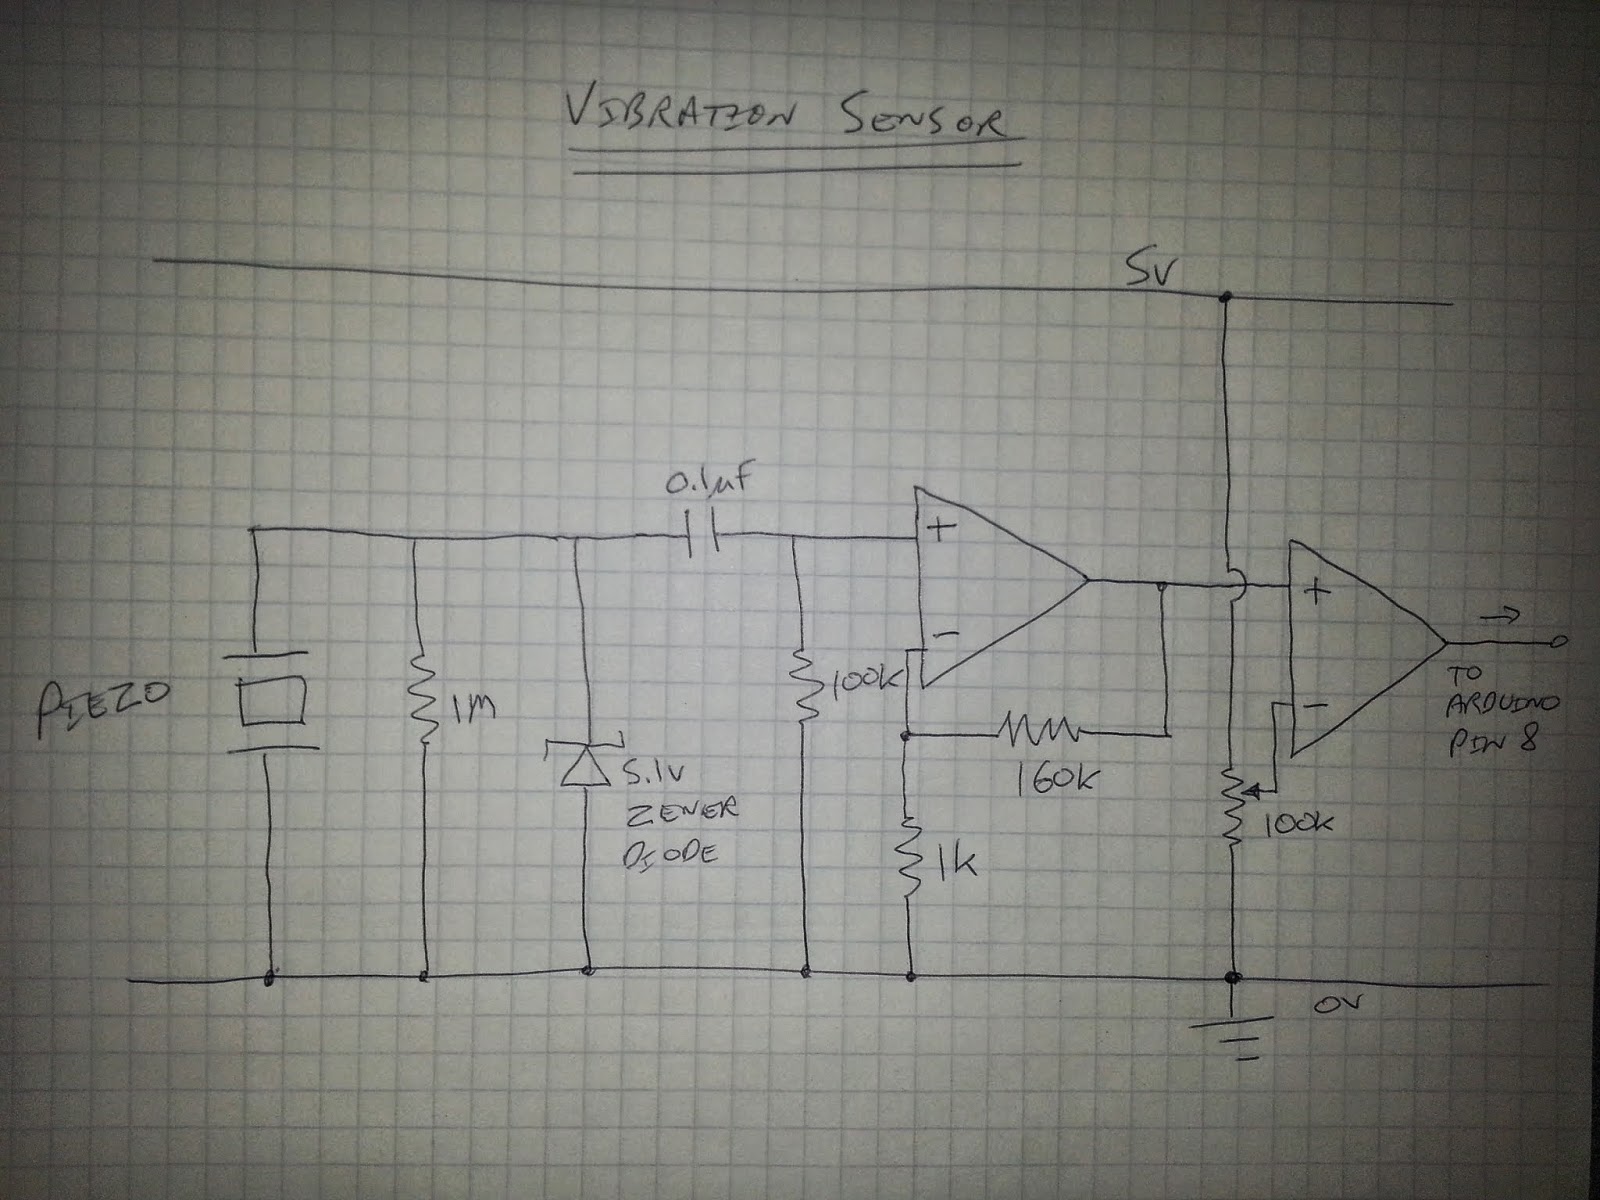 VIBRATION SENSOR
5V
0.1uF
+
-
+
-
PIEZO
1M
5.1V
ZENER
DIODE
100K
160K
1K
100K
→
TO
ARDUINO
PIN 8
0V